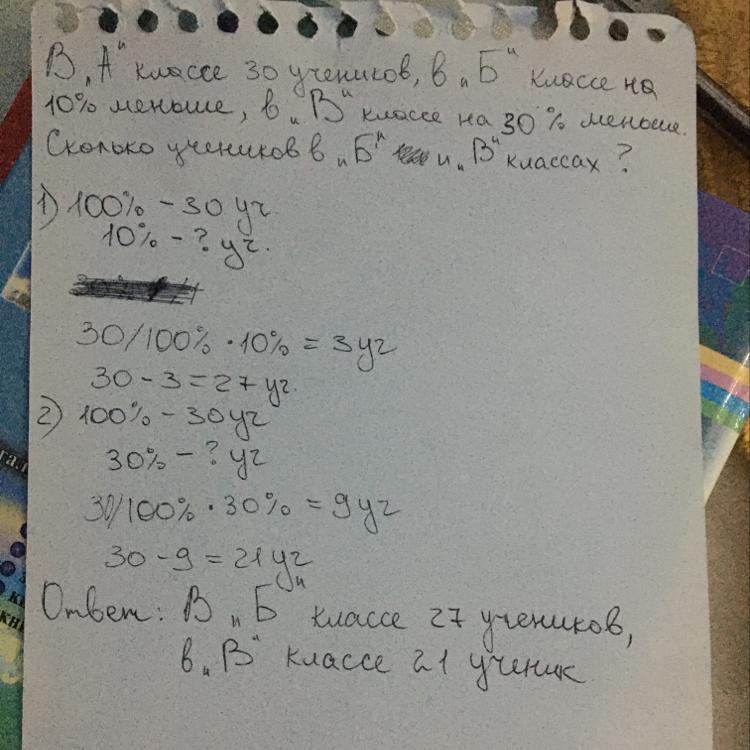 В „А“ классе 30 учеников, в „Б“ классе на
10% меньше, в „В“ классе на 30% меньше.
Сколько учеников в „Б“ и „В“ классах?
1) 100% - 30 уч.
10% - ? уч.
30/100% · 10% = 3 уч
30 - 3 = 27 уч.
2) 100% - 30 уч
30% - ? уч
30/100% · 30% = 9 уч
30 - 9 = 21 уч
Ответ: В „Б“ классе 27 учеников,
в „В“ классе 21 ученик